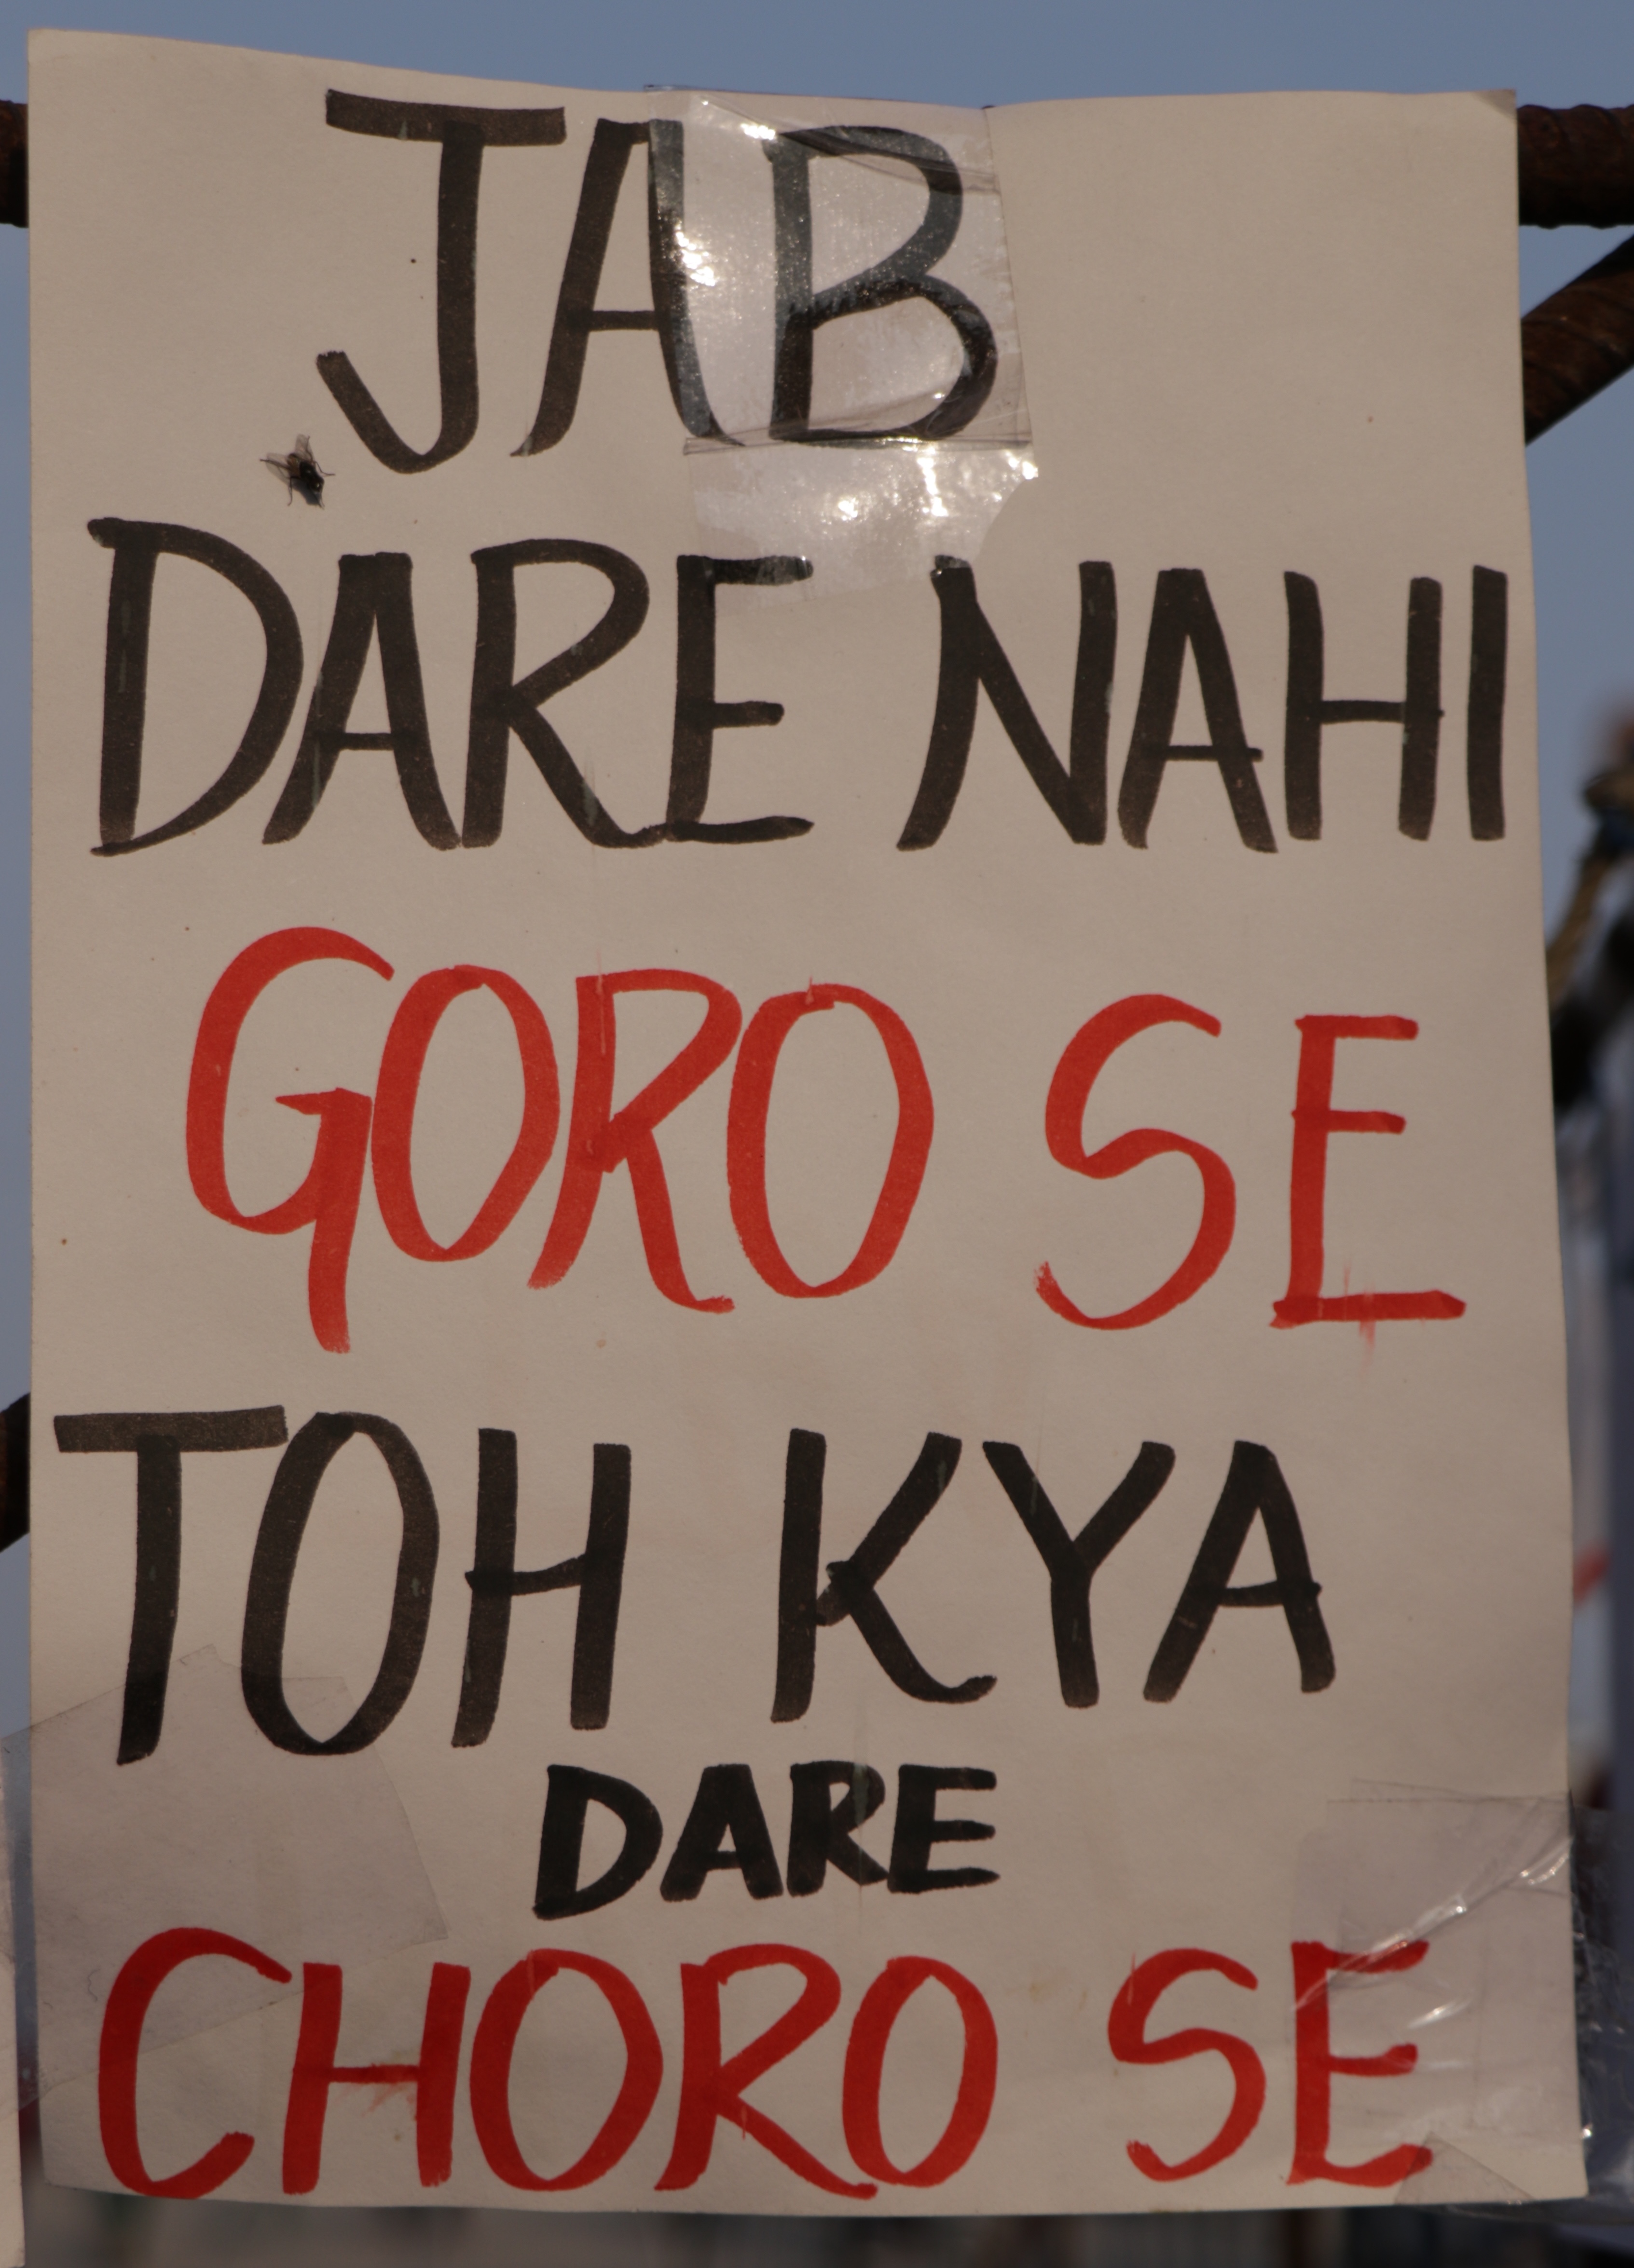 JAB
DARE NAHI
GORO SE
TOH KYA
DARE
CHORO SE